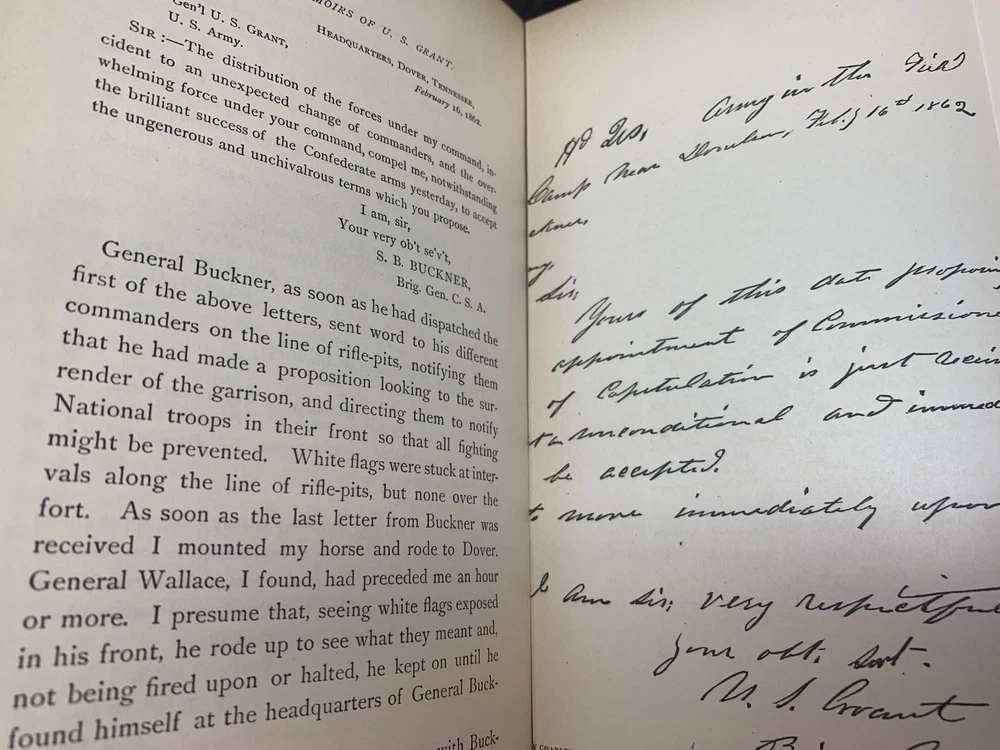 MOIRS OF U. S. GRANT.
HEADQUARTERS, DOVER, TENNESSEE,
February 16, 1862.
Gen'l U. S. GRANT,
U. S. Army.
SIR :—The distribution of the forces under my command, in-
cident to an unexpected change of commanders, and the over-
whelming force under your command, compel me, notwithstanding
the brilliant success of the Confederate arms yesterday, to accept
the ungenerous and unchivalrous terms which you propose.
I am, sir,
Your very ob't se'v't,
S. B. BUCKNER,
Brig. Gen. C. S. A.
General Buckner, as soon as he had dispatched the
first of the above letters, sent word to his different
commanders on the line of rifle-pits, notifying them
that he had made a proposition looking to the sur-
render of the garrison, and directing them to notify
National troops in their front so that all fighting
might be prevented. White flags were stuck at inter-
vals along the line of rifle-pits, but none over the
fort. As soon as the last letter from Buckner was
received I mounted my horse and rode to Dover.
General Wallace, I found, had preceded me an hour
or more. I presume that, seeing white flags exposed
in his front, he rode up to see what they meant and,
not being fired upon or halted, he kept on until he
found himself at the headquarters of General Buck-
with Buck-
Hd Qrs, Army in the Field
Camp near Donelson, Feb.y 16th 1862
ckner,
my,
Sir;
Yours of this date proposin
appointment of Commissione
of Capitulation is just recei
unconditional and immed
be accepted.
to move immediately upon
I am sir; very respectful
your obt. svt.
U. S. Grant
Brig.